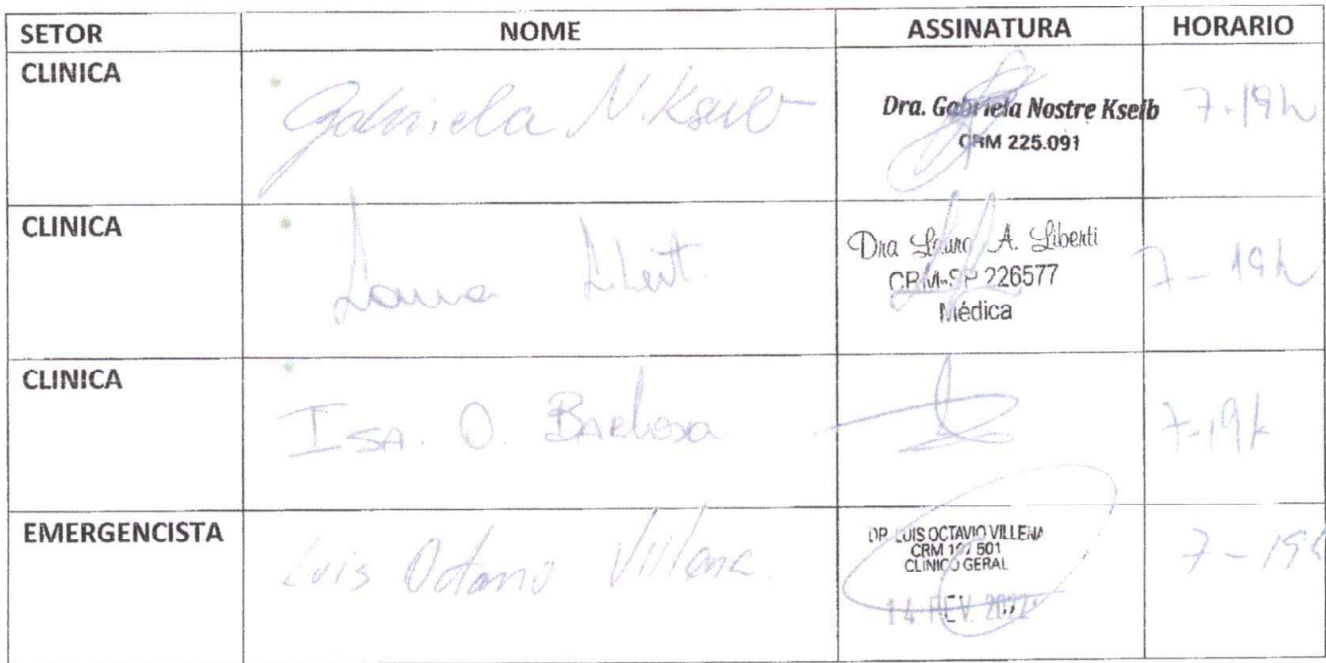 SETOR NOME ASSINATURA HORARIO
CLINICA Gabriela N. Kseib Dra. Gabriela Nostre Kseib 7-19h
CRM 225.091
CLINICA Laura Libert. Dra Laura A. Liberti 7-19h
CRM-SP 226577
Médica
CLINICA ISA. O. Barbosa 7-19h
EMERGENCISTA Luis Octavio Villena. DR. LUIS OCTAVIO VILLENA 7-19h
CRM 501
CLINICO GERAL
14 FEV. 2022